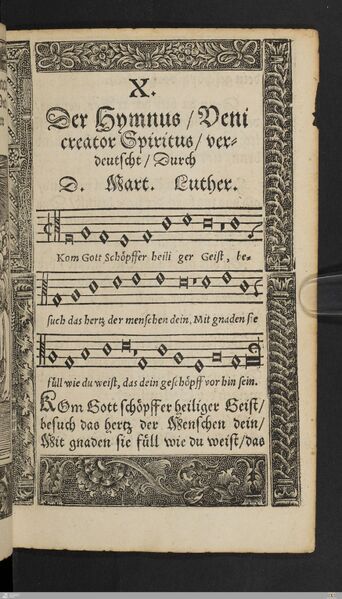 X.
Der Hymnus / Veni
creator Spiritus / ver-
deutscht / Durch
D. Mart. Luther.
Kom Gott Schöpffer heili ger Geist, be-
such das hertz der menschen dein, Mit gnaden sie
füll wie du weist, das dein geschöpff vor hin sein.
KOm Gott schöpffer heiliger Geist /
besuch das hertz der Menschen dein /
Mit gnaden sie füll wie du weist / das